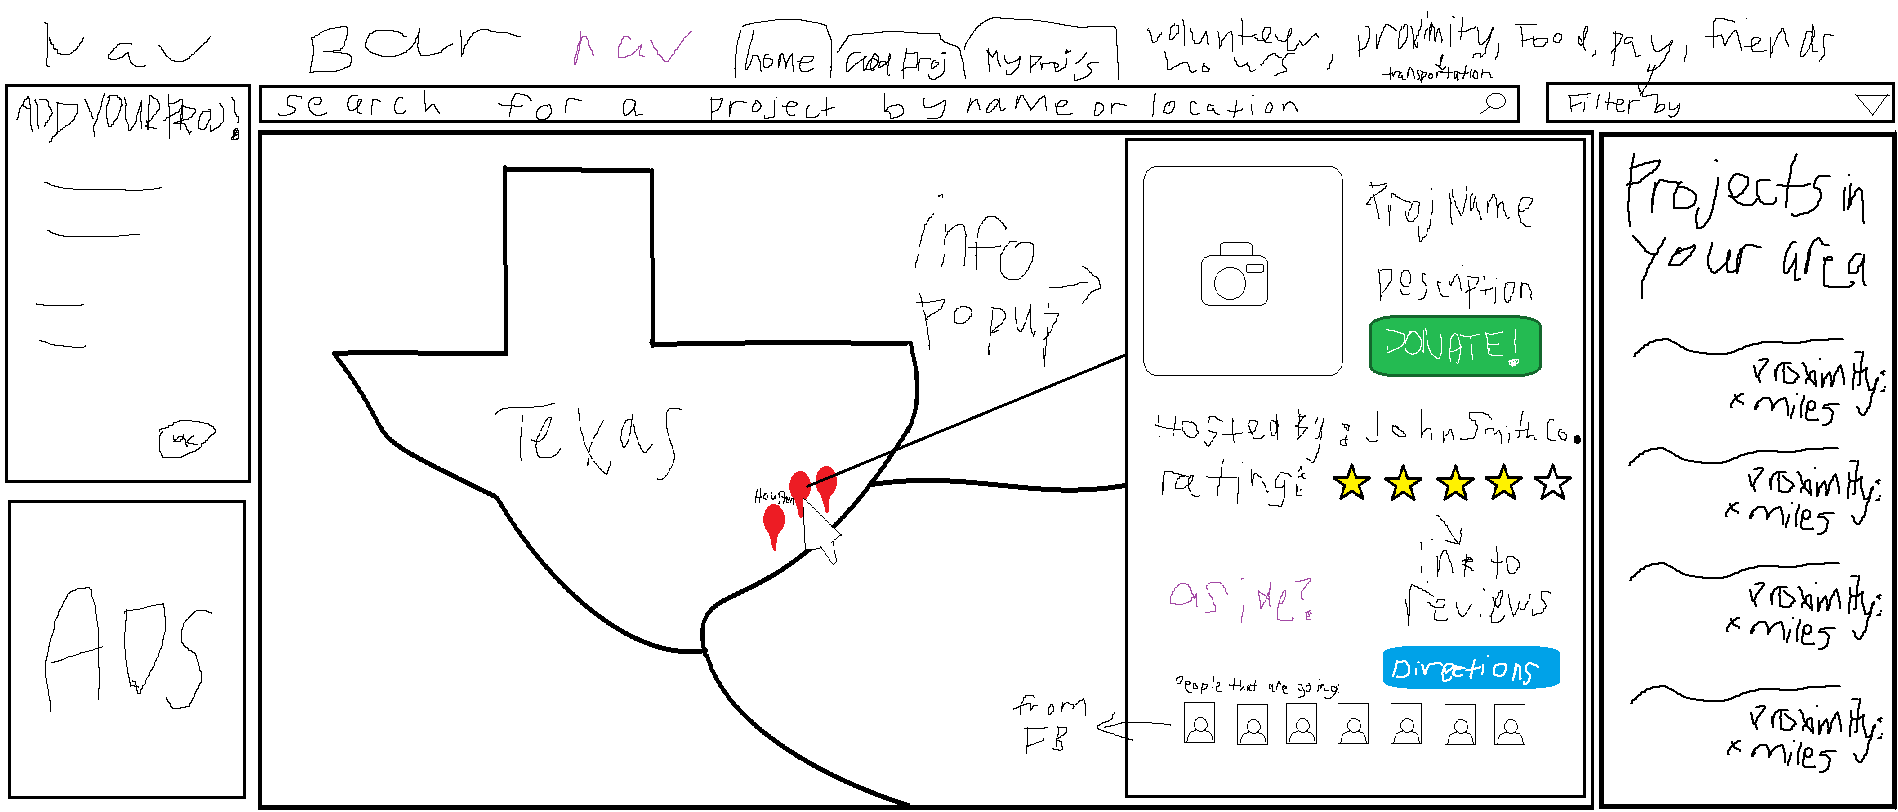 Nav Bar nav
home
Add Proj
My Proj's
volunteer hours, proximity, Food, pay, friends
transportation
ADD YOUR PROJ!
search for a project by name or location
Filter by
Texas
Houston
info
popup
Proj Name
Description
DONATE!
Hosted By: John Smith Co.
rating:
link to
reviews
aside?
Directions
People that are going:
from
FB
Projects in
your area
Proximity:
x miles
Proximity:
x miles
Proximity:
x miles
Proximity:
x miles
ADS